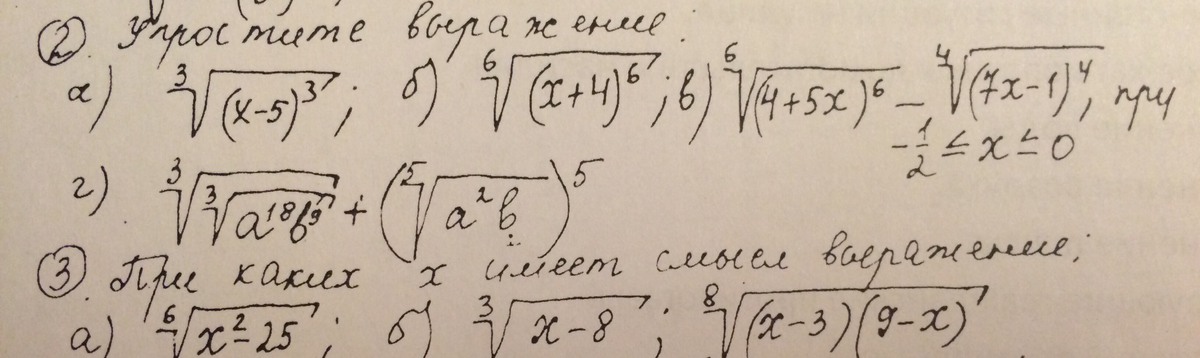 ② Упростите выражение:
а) ∛((x-5)³); б) ⁶√((x+4)⁶); в) ⁶√((4+5x)⁶) - ⁴√((7x-1)⁴), при
-1/2 ≤ x ≤ 0
г) ∛(∛(a¹⁸b⁹)) + (⁵√(a²b))⁵
③. При каких x имеет смысл выражение:
а) ⁶√(x²-25); б) ∛(x-8); ⁸√((x-3)(9-x))